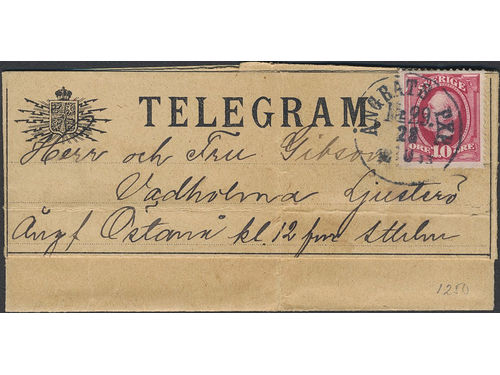 TELEGRAM
SVERIGE
ÖRE 10 ÖRE
ÅNGBÅTS PXP
28
Herr och Fru Gibson
Vadholma Ljusterö
Ångf Östanå kl. 12 fm Sthlm
1250